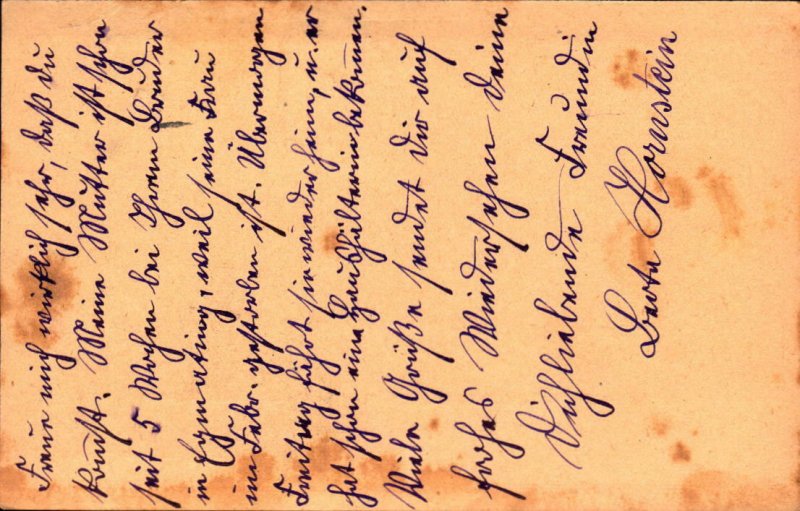 Freue mich wirklich sehr, daß du
kommst. Meine Mutter ist schon
seit 5 Wochen bei Ihrem Bruder
in Egmating, weil seine Frau
im Febr. gestorben ist. Übermorgen
Freitag fährt sie wieder heim, u. er
hat schon eine Haushälterin bekommen.
Viele Grüße sendet Dir auf
frohes Wiedersehen Deine
Dichliebende Freundin
Berta Hornstein